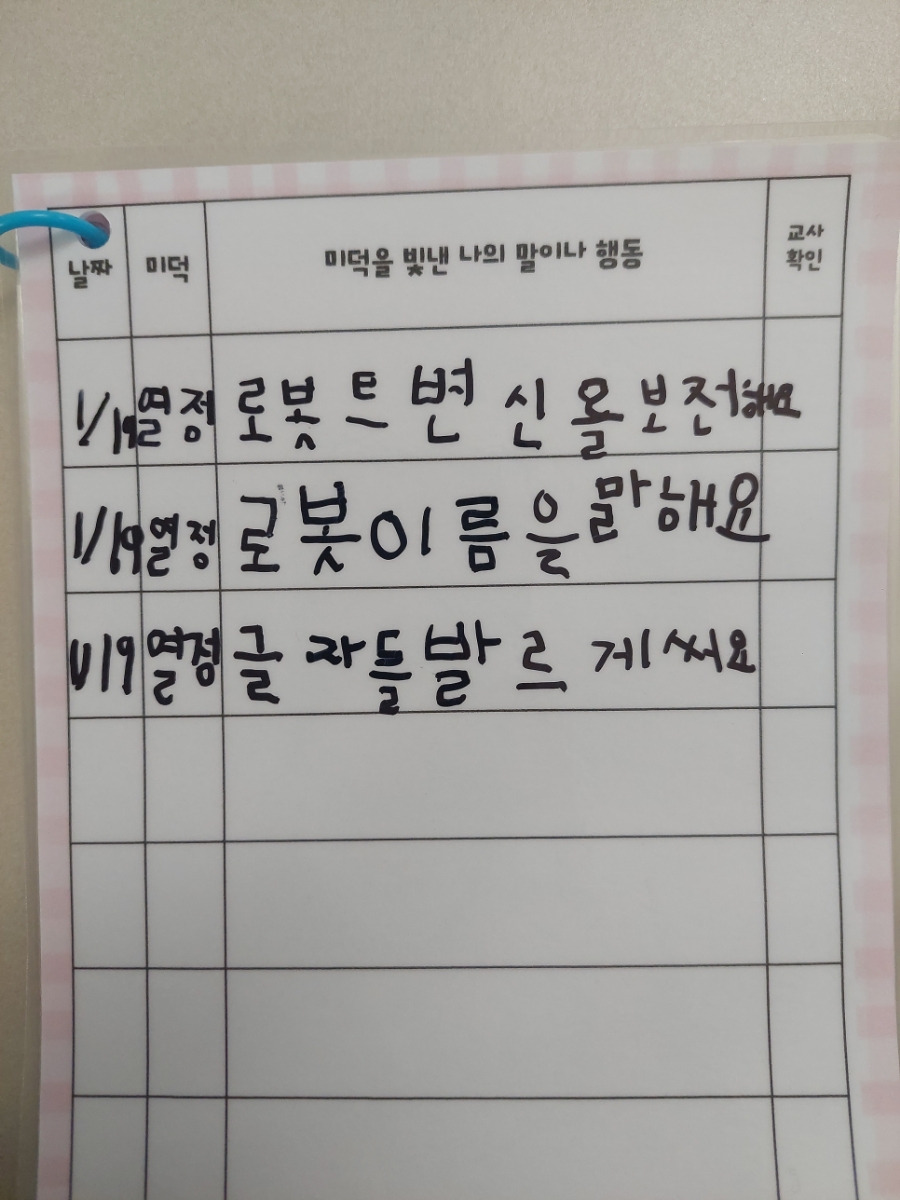 날짜 미덕 미덕을 빛낸 나의 말이나 행동 교사 확인
1/19 열정 로봇트변신올보전해요
1/19 열정 로봇이름을말해요
1/19 열정 글자들발르게써요